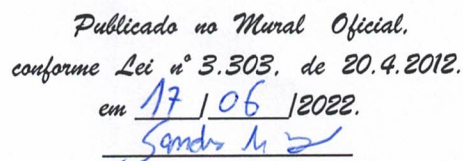 Publicado no Mural Oficial,
conforme Lei nº 3.303, de 20.4.2012.
em 17 / 06 /2022.
Sandra